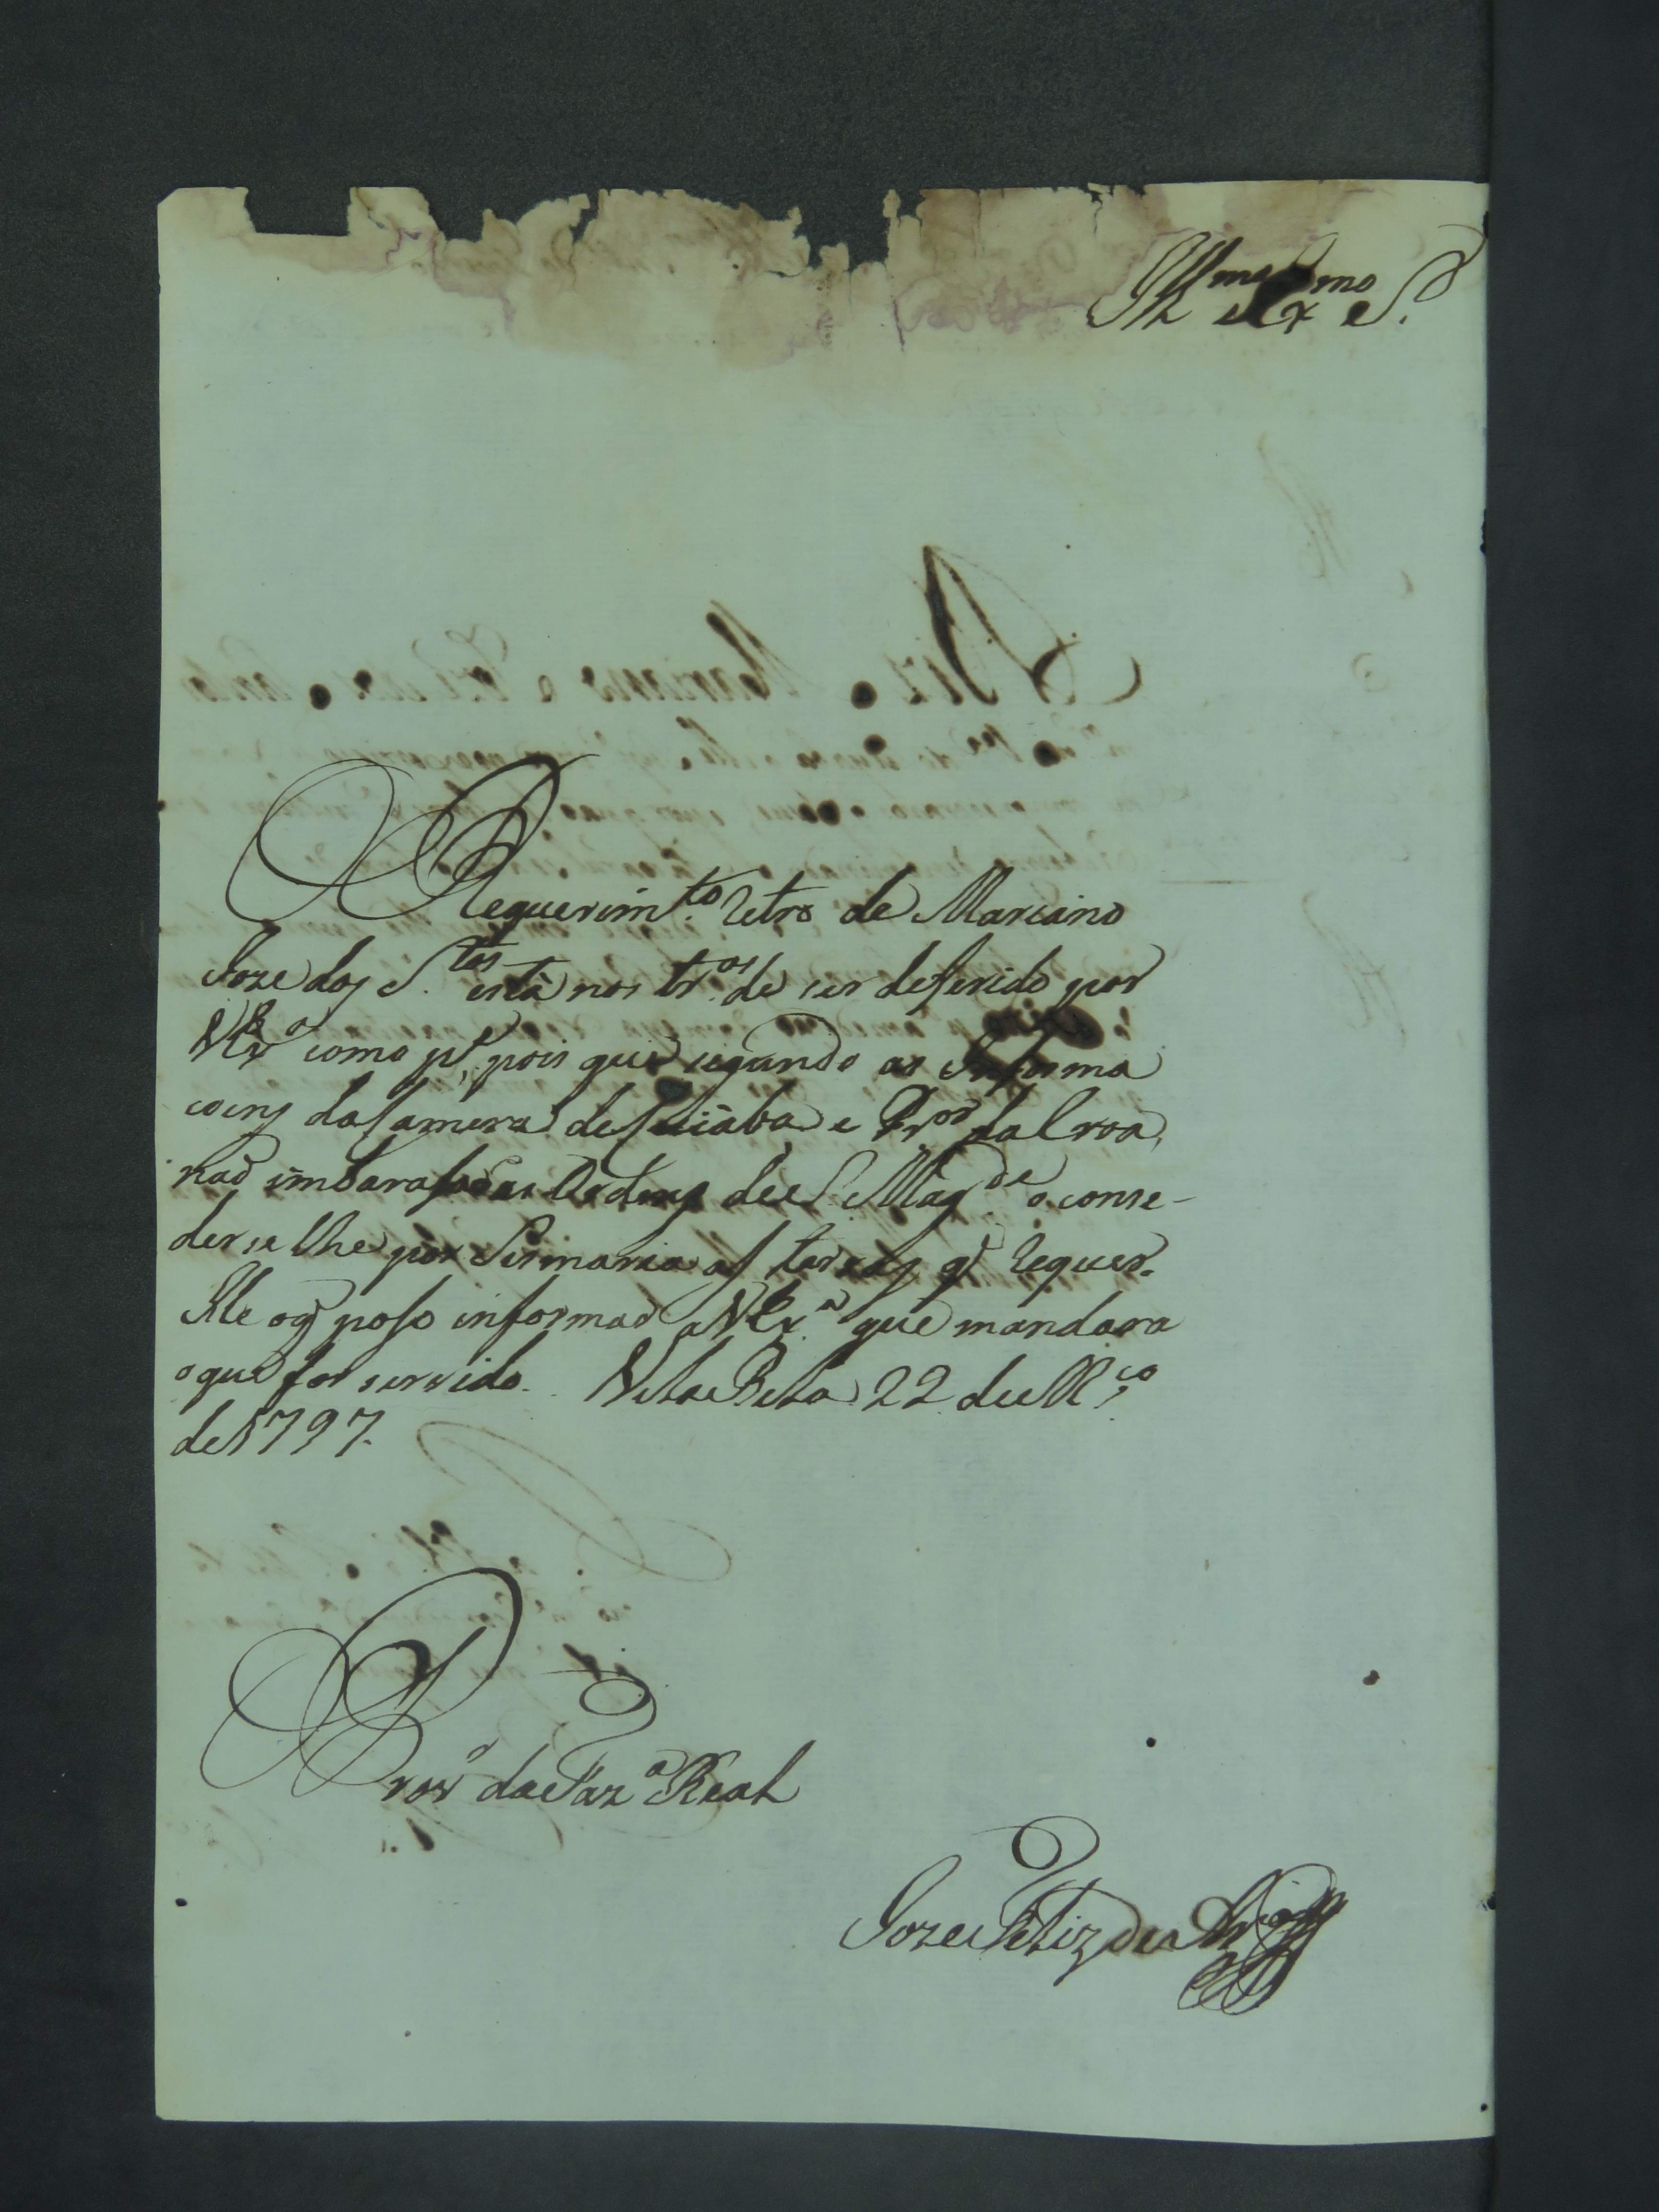 Ill^mo e Ex^mo S^r
Requerim^to retro de Marciano
Joze dos S^tos está nos tr^os de ser deferido por
V Ex^a como p^e, pois que segundo as Informa
coens da Camera de Cuiaba e Pr^or da Croa,
naõ imbarasa as Ordens de S Mag^de o conse-
der se lhe por Sismaria as terras q̃ requer.
He o q̃ poso informar a V Ex^a que mandara
o que for servido. Villa Bella 22 de M^ço
de 1797.
Pro^r da Faz^a Real
Joze Feliz de